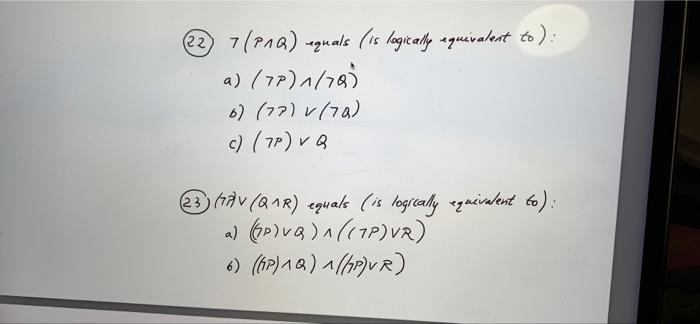 22) ¬(P∧Q) equals (is logically equivalent to):
a) (¬P)∧(¬Q)
b) (¬P)∨(¬Q)
c) (¬P)∨Q
23) (¬P)∨(Q∧R) equals (is logically equivalent to):
a) ((¬P)∨Q)∧((¬P)∨R)
b) ((¬P)∧Q)∧((¬P)∨R)